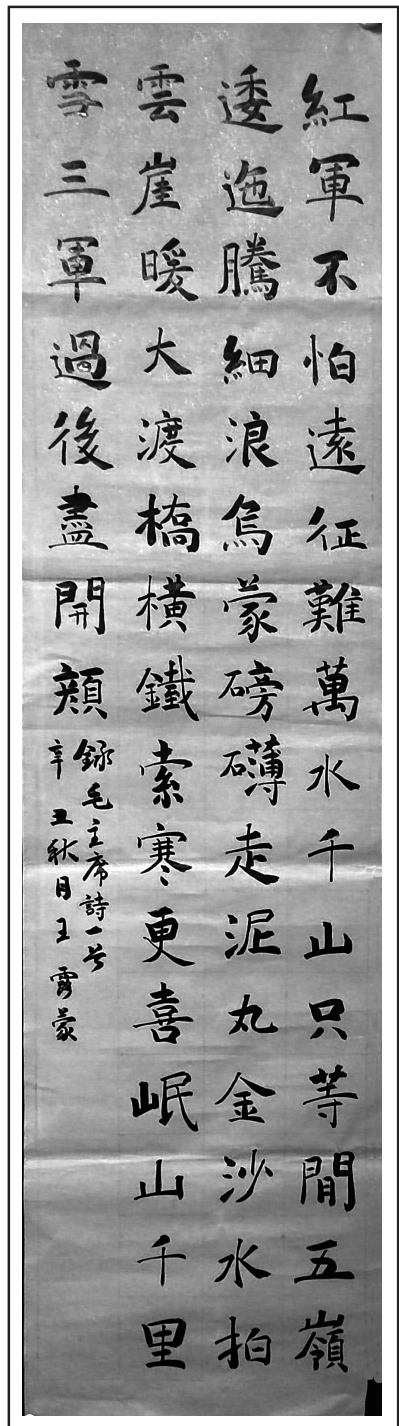 紅軍不怕遠征難萬水千山只等閒五嶺
逶迤騰細浪烏蒙磅礴走泥丸金沙水拍
雲崖暖大渡橋橫鐵索寒更喜岷山千里
雪三軍過後盡開顏
錄毛主席詩一首
辛丑秋月王露蒙